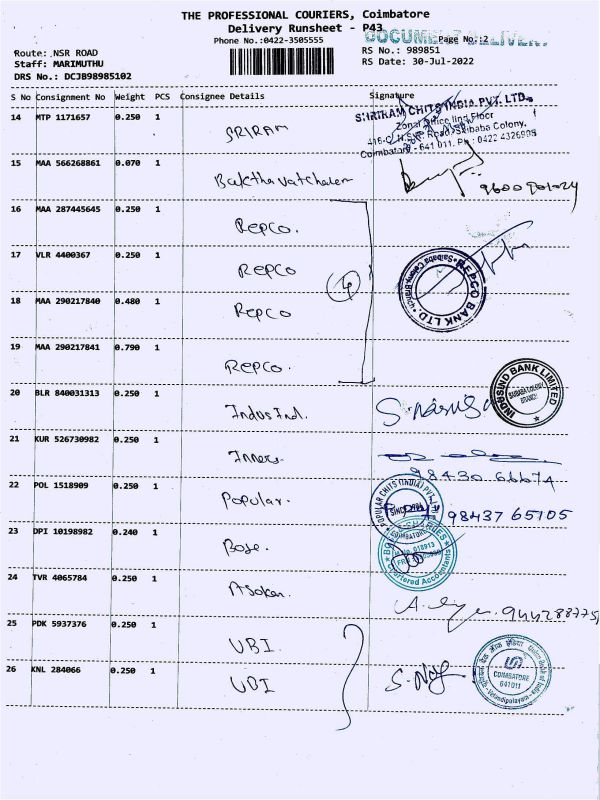 THE PROFESSIONAL COURIERS, Coimbatore
Delivery Runsheet - P43
DOCUMENT DELIVERY
Phone No.:0422-3505555 Page No.:2
Route: NSR ROAD RS No.: 989851
Staff: MARIMUTHU RS Date: 30-Jul-2022
DRS No.: DCJB98985102
S No Consignment No Weight PCS Consignee Details Signature
14 MTP 1171657 0.250 1 SRIRAM
SHRIRAM CHITS INDIA PVT. LTD.
Zonal Office IInd Floor
Road, Saibaba Colony,
Coimbatore - 641 011. Ph : 0422 4326998
15 MAA 566268861 0.070 1 Bakthavatchalem
16 MAA 287445645 0.250 1 Repco.
17 VLR 4400367 0.250 1 Repco
REPCO BANK LTD
Saibaba Colony Branch
4
18 MAA 290217840 0.480 1 Repco
19 MAA 290217841 0.790 1 Repco.
20 BLR 840031313 0.250 1 IndusInd.
INDUSIND BANK LIMITED
SAIBABA COLONY
BRANCH
21 KUR 526730982 0.250 1
98430 66674
22 POL 1518909 0.250 1 Popular.
POPULAR CHITS (INDIA) PVT LTD
98437 65105
23 DPI 10198982 0.240 1 Bose.
COIMBATORE
Chartered Accountants
24 TVR 4065784 0.250 1 Asokan
25 PDK 5937376 0.250 1 UBI.
26 KNL 284066 0.250 1 UBI
यूनियन बैंक ऑफ इंडिया Union Bank of India
COIMBATORE
641011
Velandipalayam